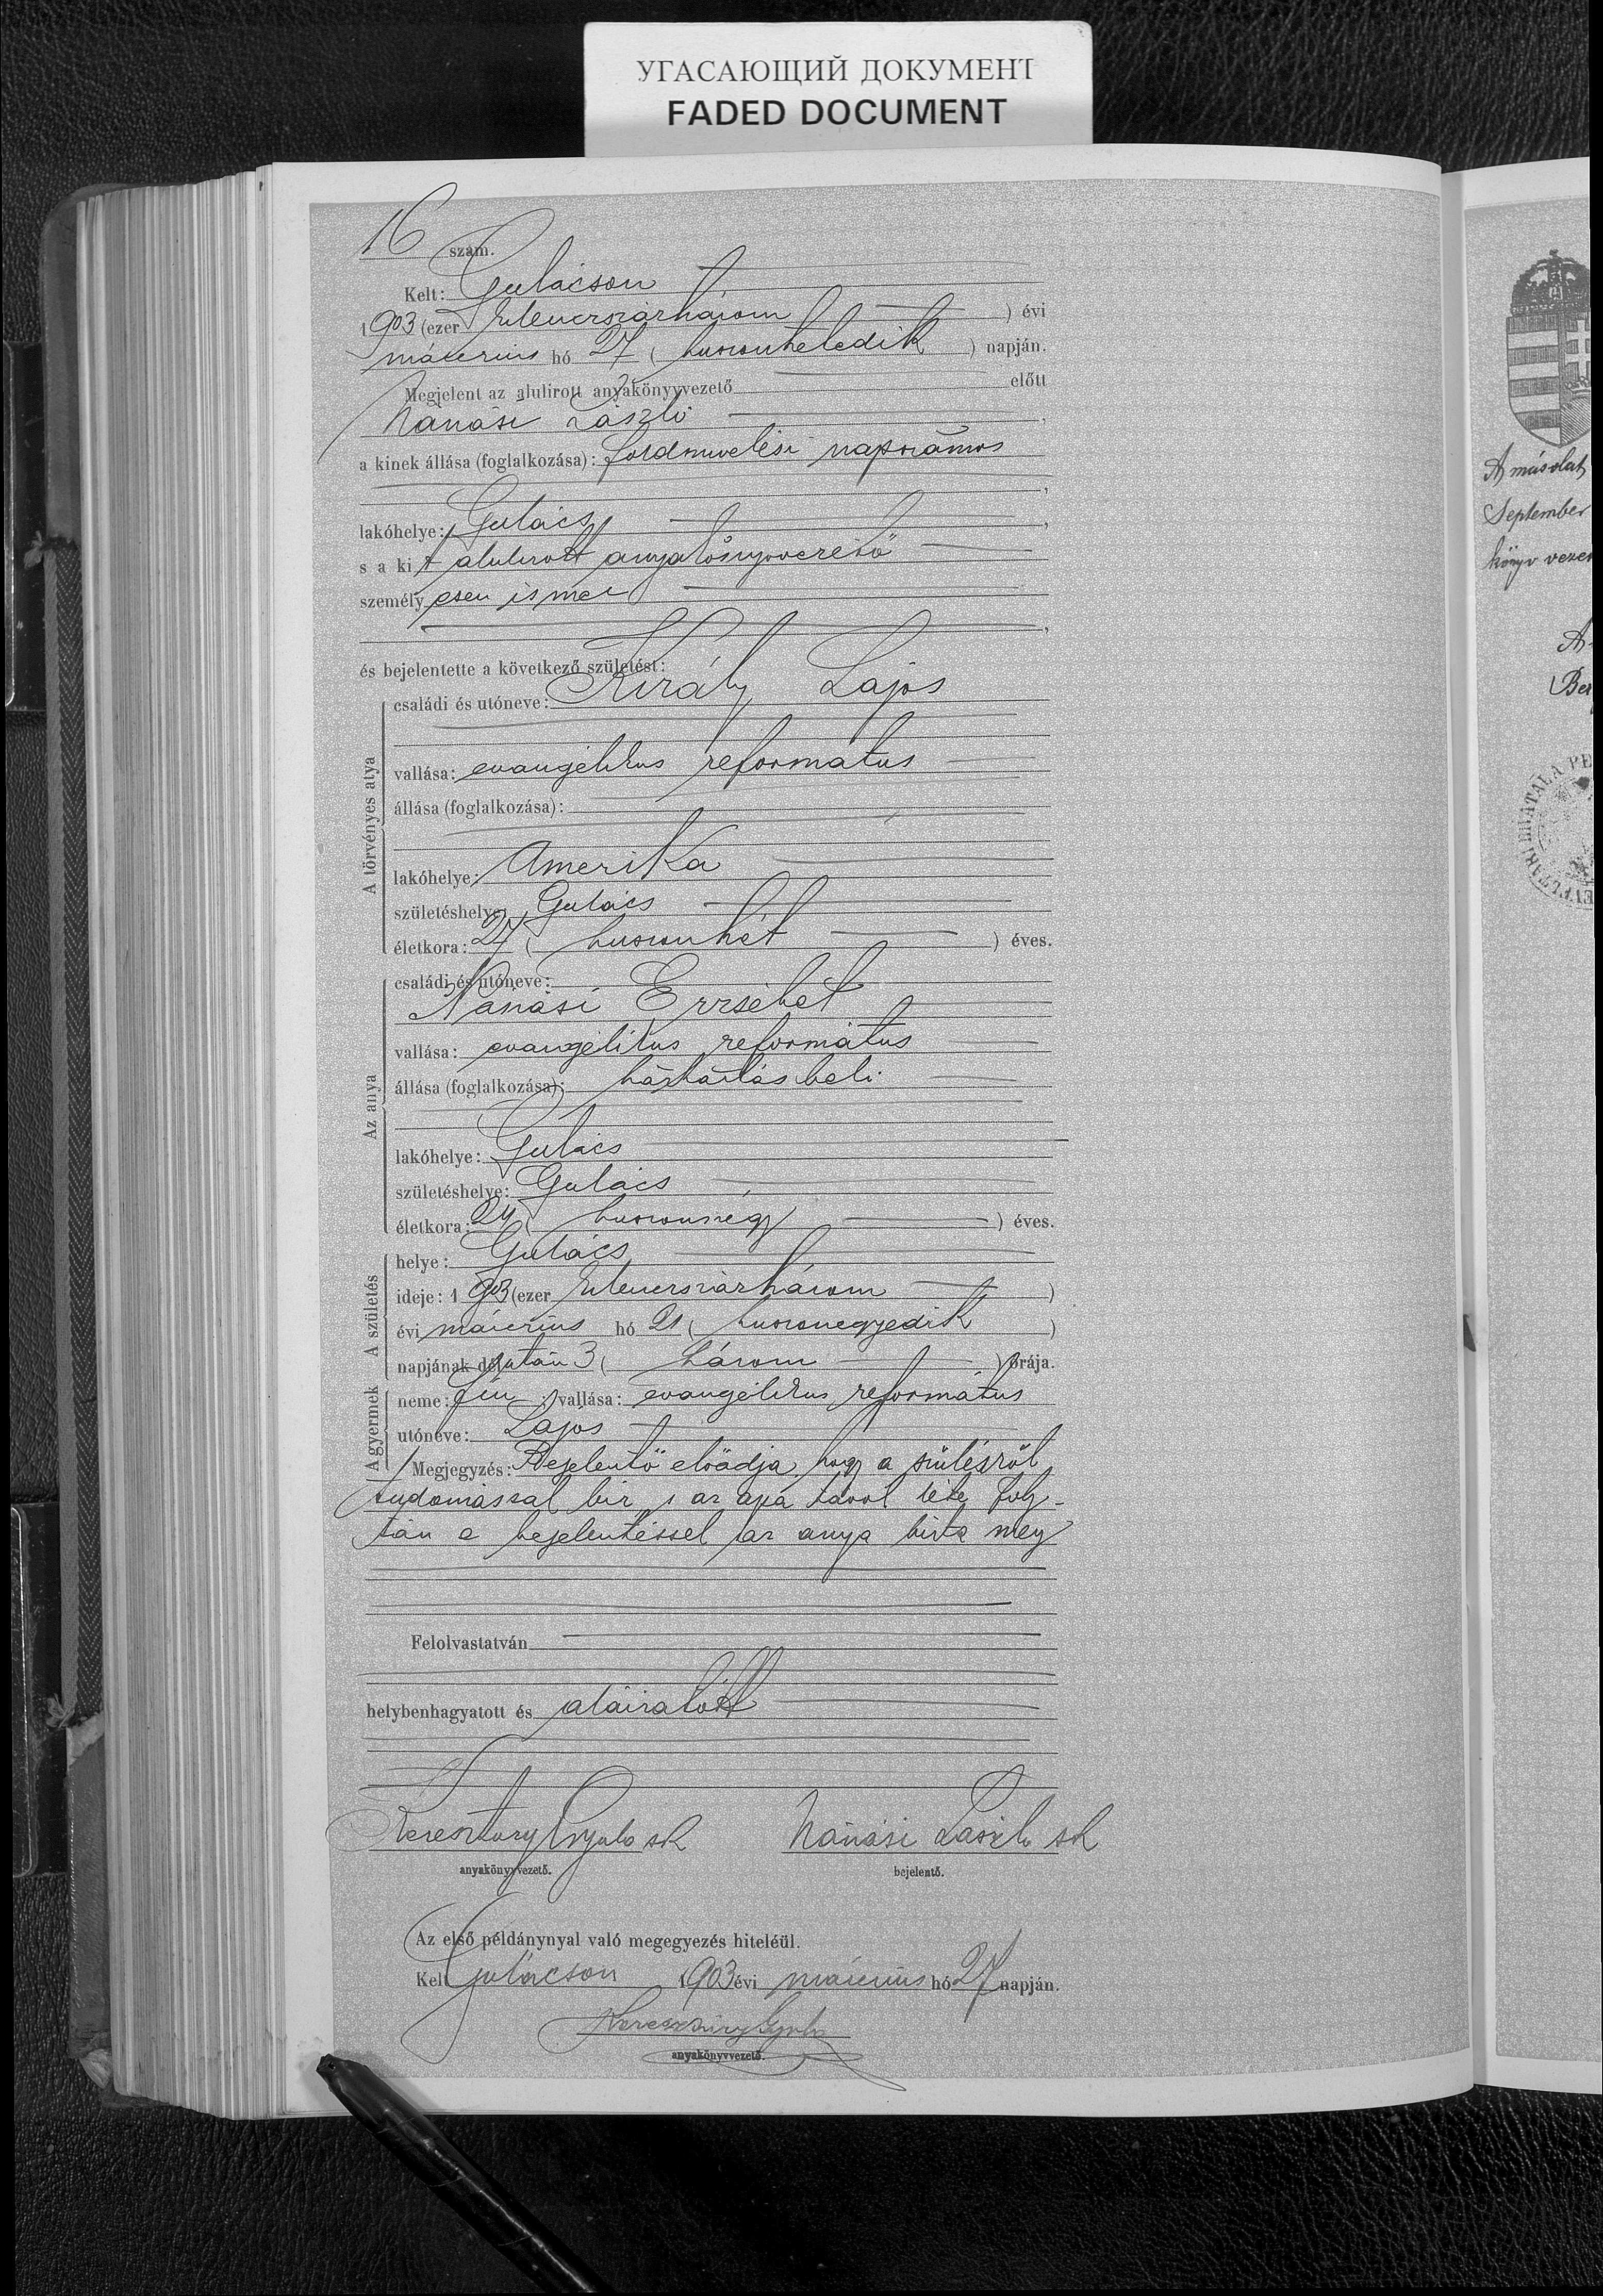 УГАСАЮЩИЙ ДОКУМЕНТ
FADED DOCUMENT
16 szám.
Kelt: Gulácson
1903 (ezer kilenczszázhárom) évi
márczius hó 27 (huszonhetedik) napján.
Megjelent az alulirott anyakönyvvezető előtt
Nánási László
a kinek állása (foglalkozása): földmivelési napszámos
lakóhelye: Gulács,
s a kit alulirott anyakönyvvezető
személyesen ismer
és bejelentette a következő születést:
A törvényes atya
családi és utóneve: Király Lajos
vallása: evangélikus református
állása (foglalkozása):
lakóhelye: Amerika
születéshelye: Gulács
életkora: 27 (huszonhét) éves.
Az anya
családi és utóneve:
Nánási Erzsébet
vallása: evangélikus református
állása (foglalkozása): háztartásbeli
lakóhelye: Gulács
születéshelye: Gulács
életkora: 24 (huszonnégy) éves.
A születés
helye: Gulács
ideje: 1903 (ezer kilenczszázhárom)
évi márczius hó 21 (huszonegyedik)
napjának délután 3 (három) órája.
A gyermek
neme: fiu; vallása: evangélikus református
utóneve: Lajos
Megjegyzés: Bejelentő előadja, hogy a szülésről
tudomással bir s az apa távol léte foly-
tán a bejelentéssel az anya bizta meg
Felolvastatván
helybenhagyatott és aláiratott
Keresztury Gyula sk Nánási László sk
anyakönyvvezető. bejelentő.
Az első példánynyal való megegyezés hiteléül.
Kelt Gulácson 1903 évi márczius hó 27 napján.
Keresztury Gyula
anyakönyvvezető.
A másolat
September
könyv vezet
A
Ber